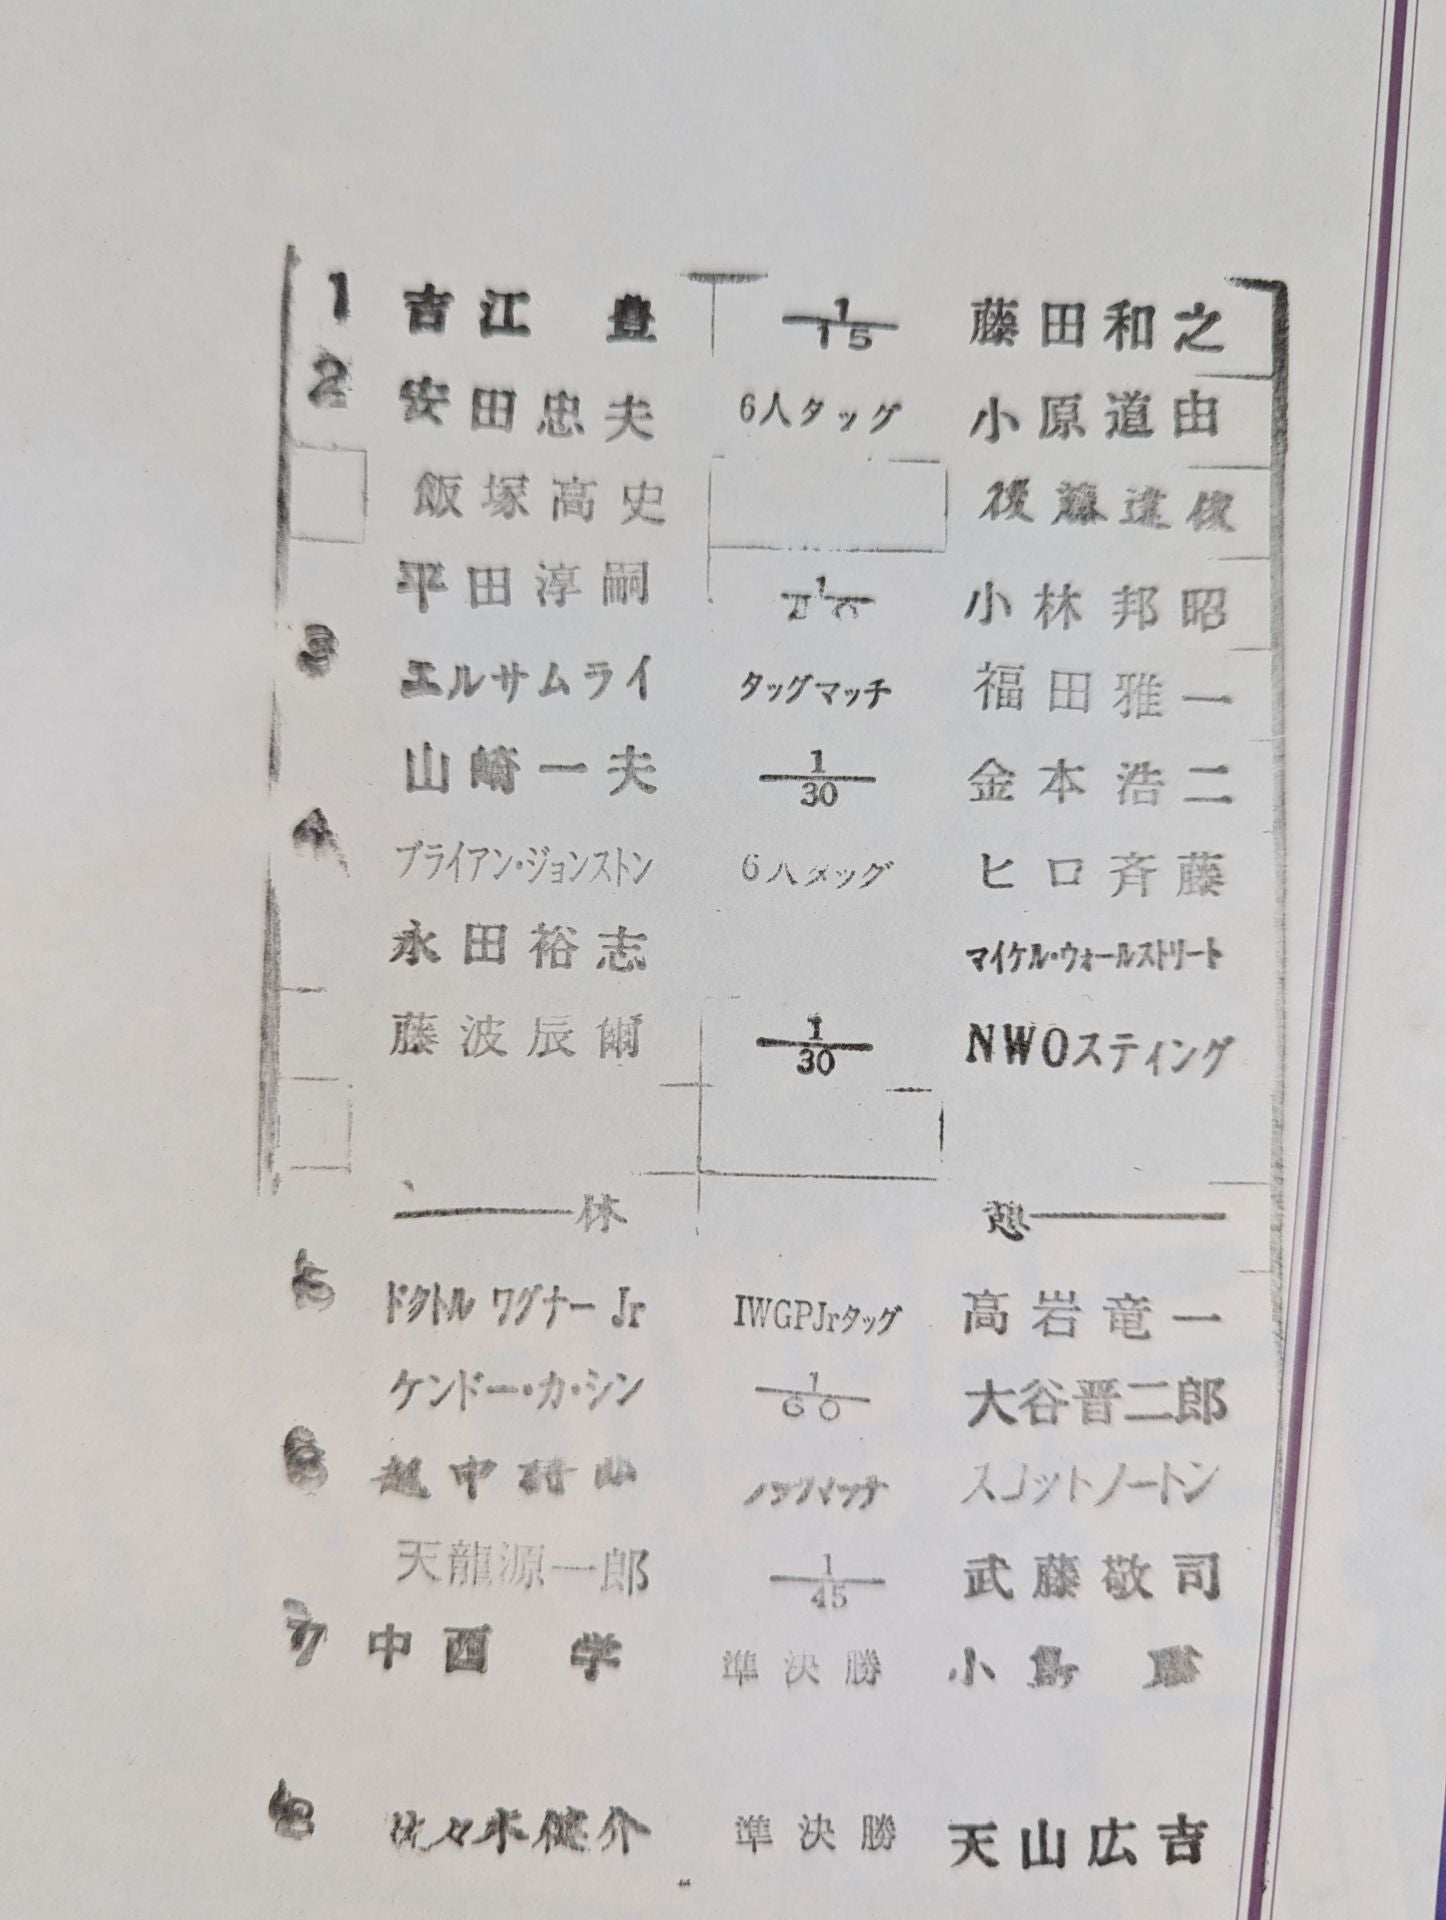 1 吉江 豊 1/15 藤田和之
2 安田忠夫 6人タッグ 小原道由
飯塚高史 後藤達俊
平田淳嗣 1/20 小林邦昭
3 エルサムライ タッグマッチ 福田雅一
山崎一夫 1/30 金本浩二
4 ブライアン・ジョンストン 6人タッグ ヒロ斉藤
永田裕志 マイケル・ウォールストリート
藤波辰爾 1/30 NWOスティング
休 憩
5 ドクトル ワグナー Jr IWGPJrタッグ 高岩竜一
ケンドー・カ・シン 1/60 大谷晋二郎
6 越中詩郎 タッグマッチ スコットノートン
天龍源一郎 1/45 武藤敬司
7 中西 学 準決勝 小島 聡
8 佐々木健介 準決勝 天山広吉